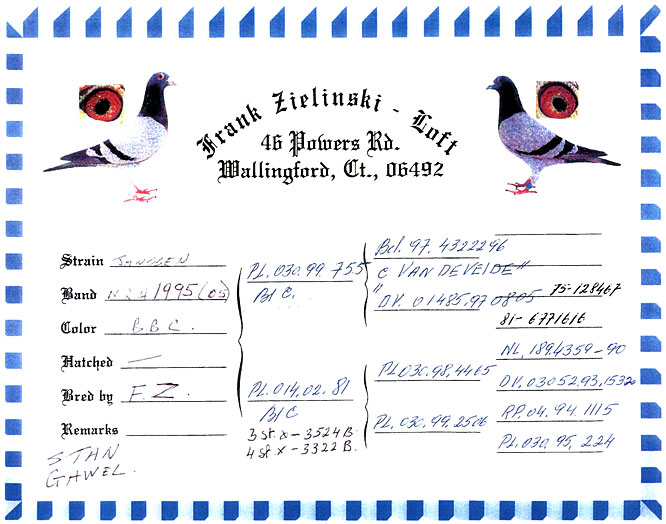 Frank Zielinski - Loft
46 Powers Rd.
Wallingford, Ct., 06492
Strain JANSSEN
Band 1995 (05)
Color B.B.C.
Hatched —
Bred by F.Z.
Remarks
STAN
GAWEL.
PL.030.99 755
Bl C.
PL.014.02.81
Bl C
3 st. x - 3524 B.
4 st x - 3322 B.
Bel. 97. 4322296
C VAN DE VEIDE"
" DV. 01485.97 0805
PL030.98.4465
PL. 030.99.2506
75-128467
81-6771616
NL, 1894359-90
DV.03052.93,1532
RP.04.94.1115
PL.030.95,224